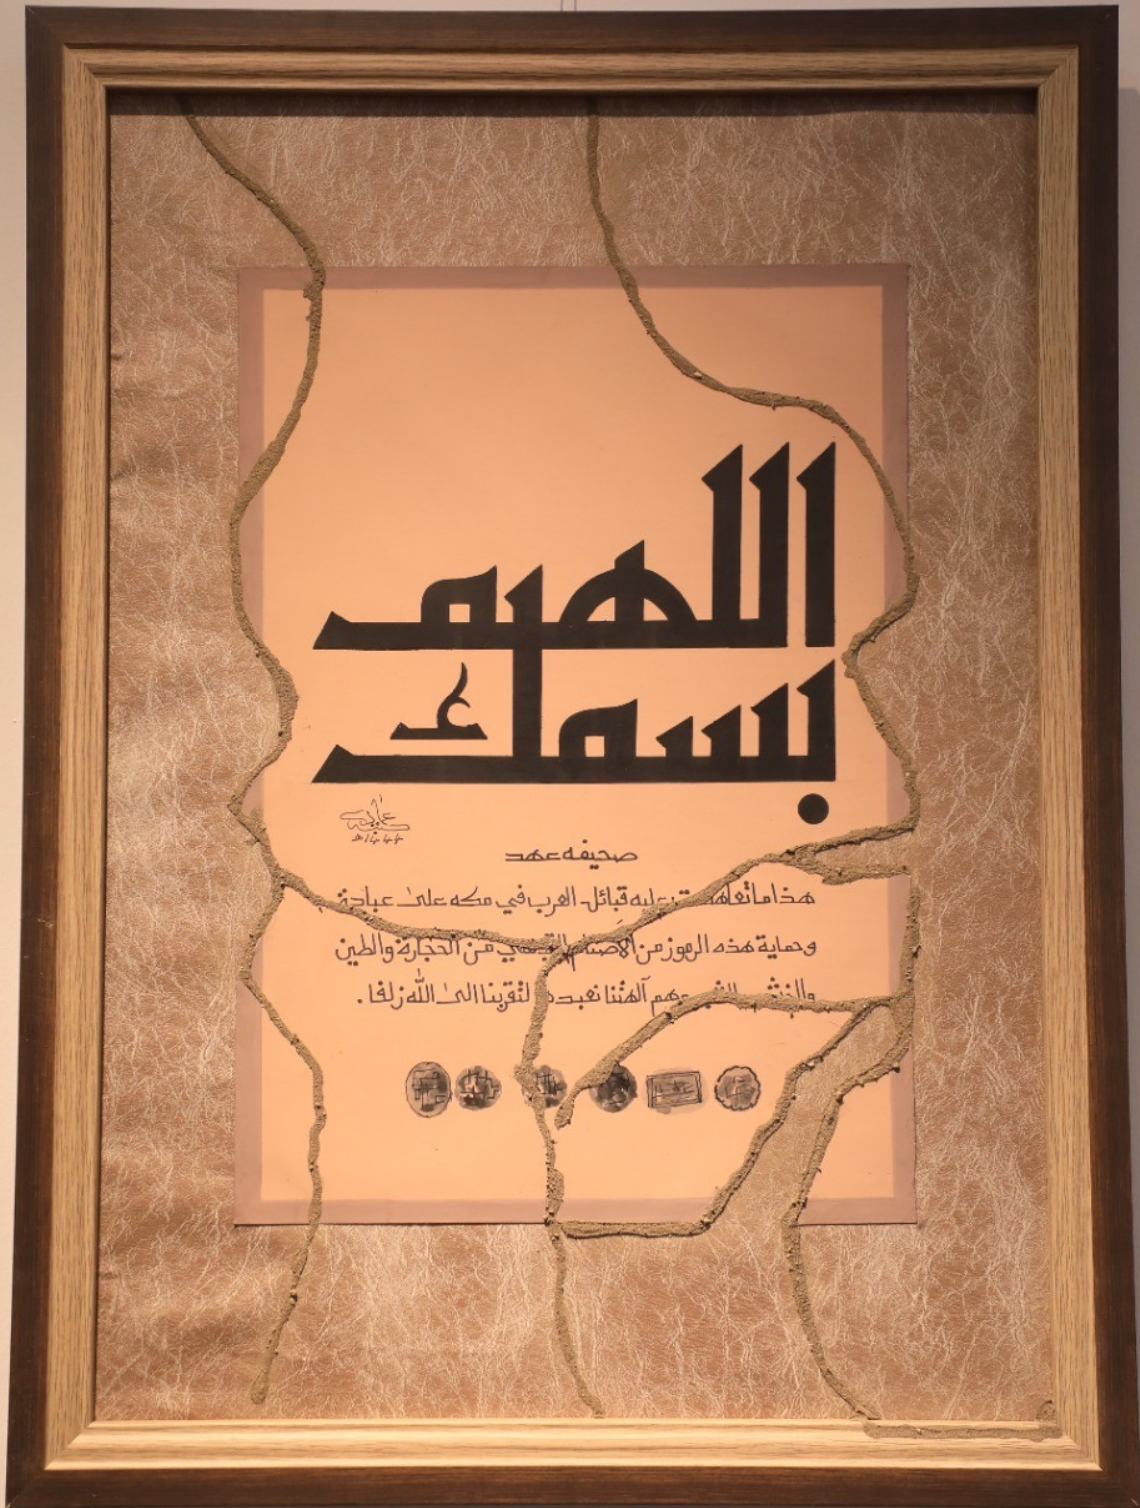 اللهم
بسمك
صحيفه عهد
هذا ما تعاهدت عليه قبائل العرب في مكه على عبادة
وحماية هذه الرموز من الأصنام من الحجارة والطين
آلهتنا نعبدها لتقربنا الى الله زلفا .